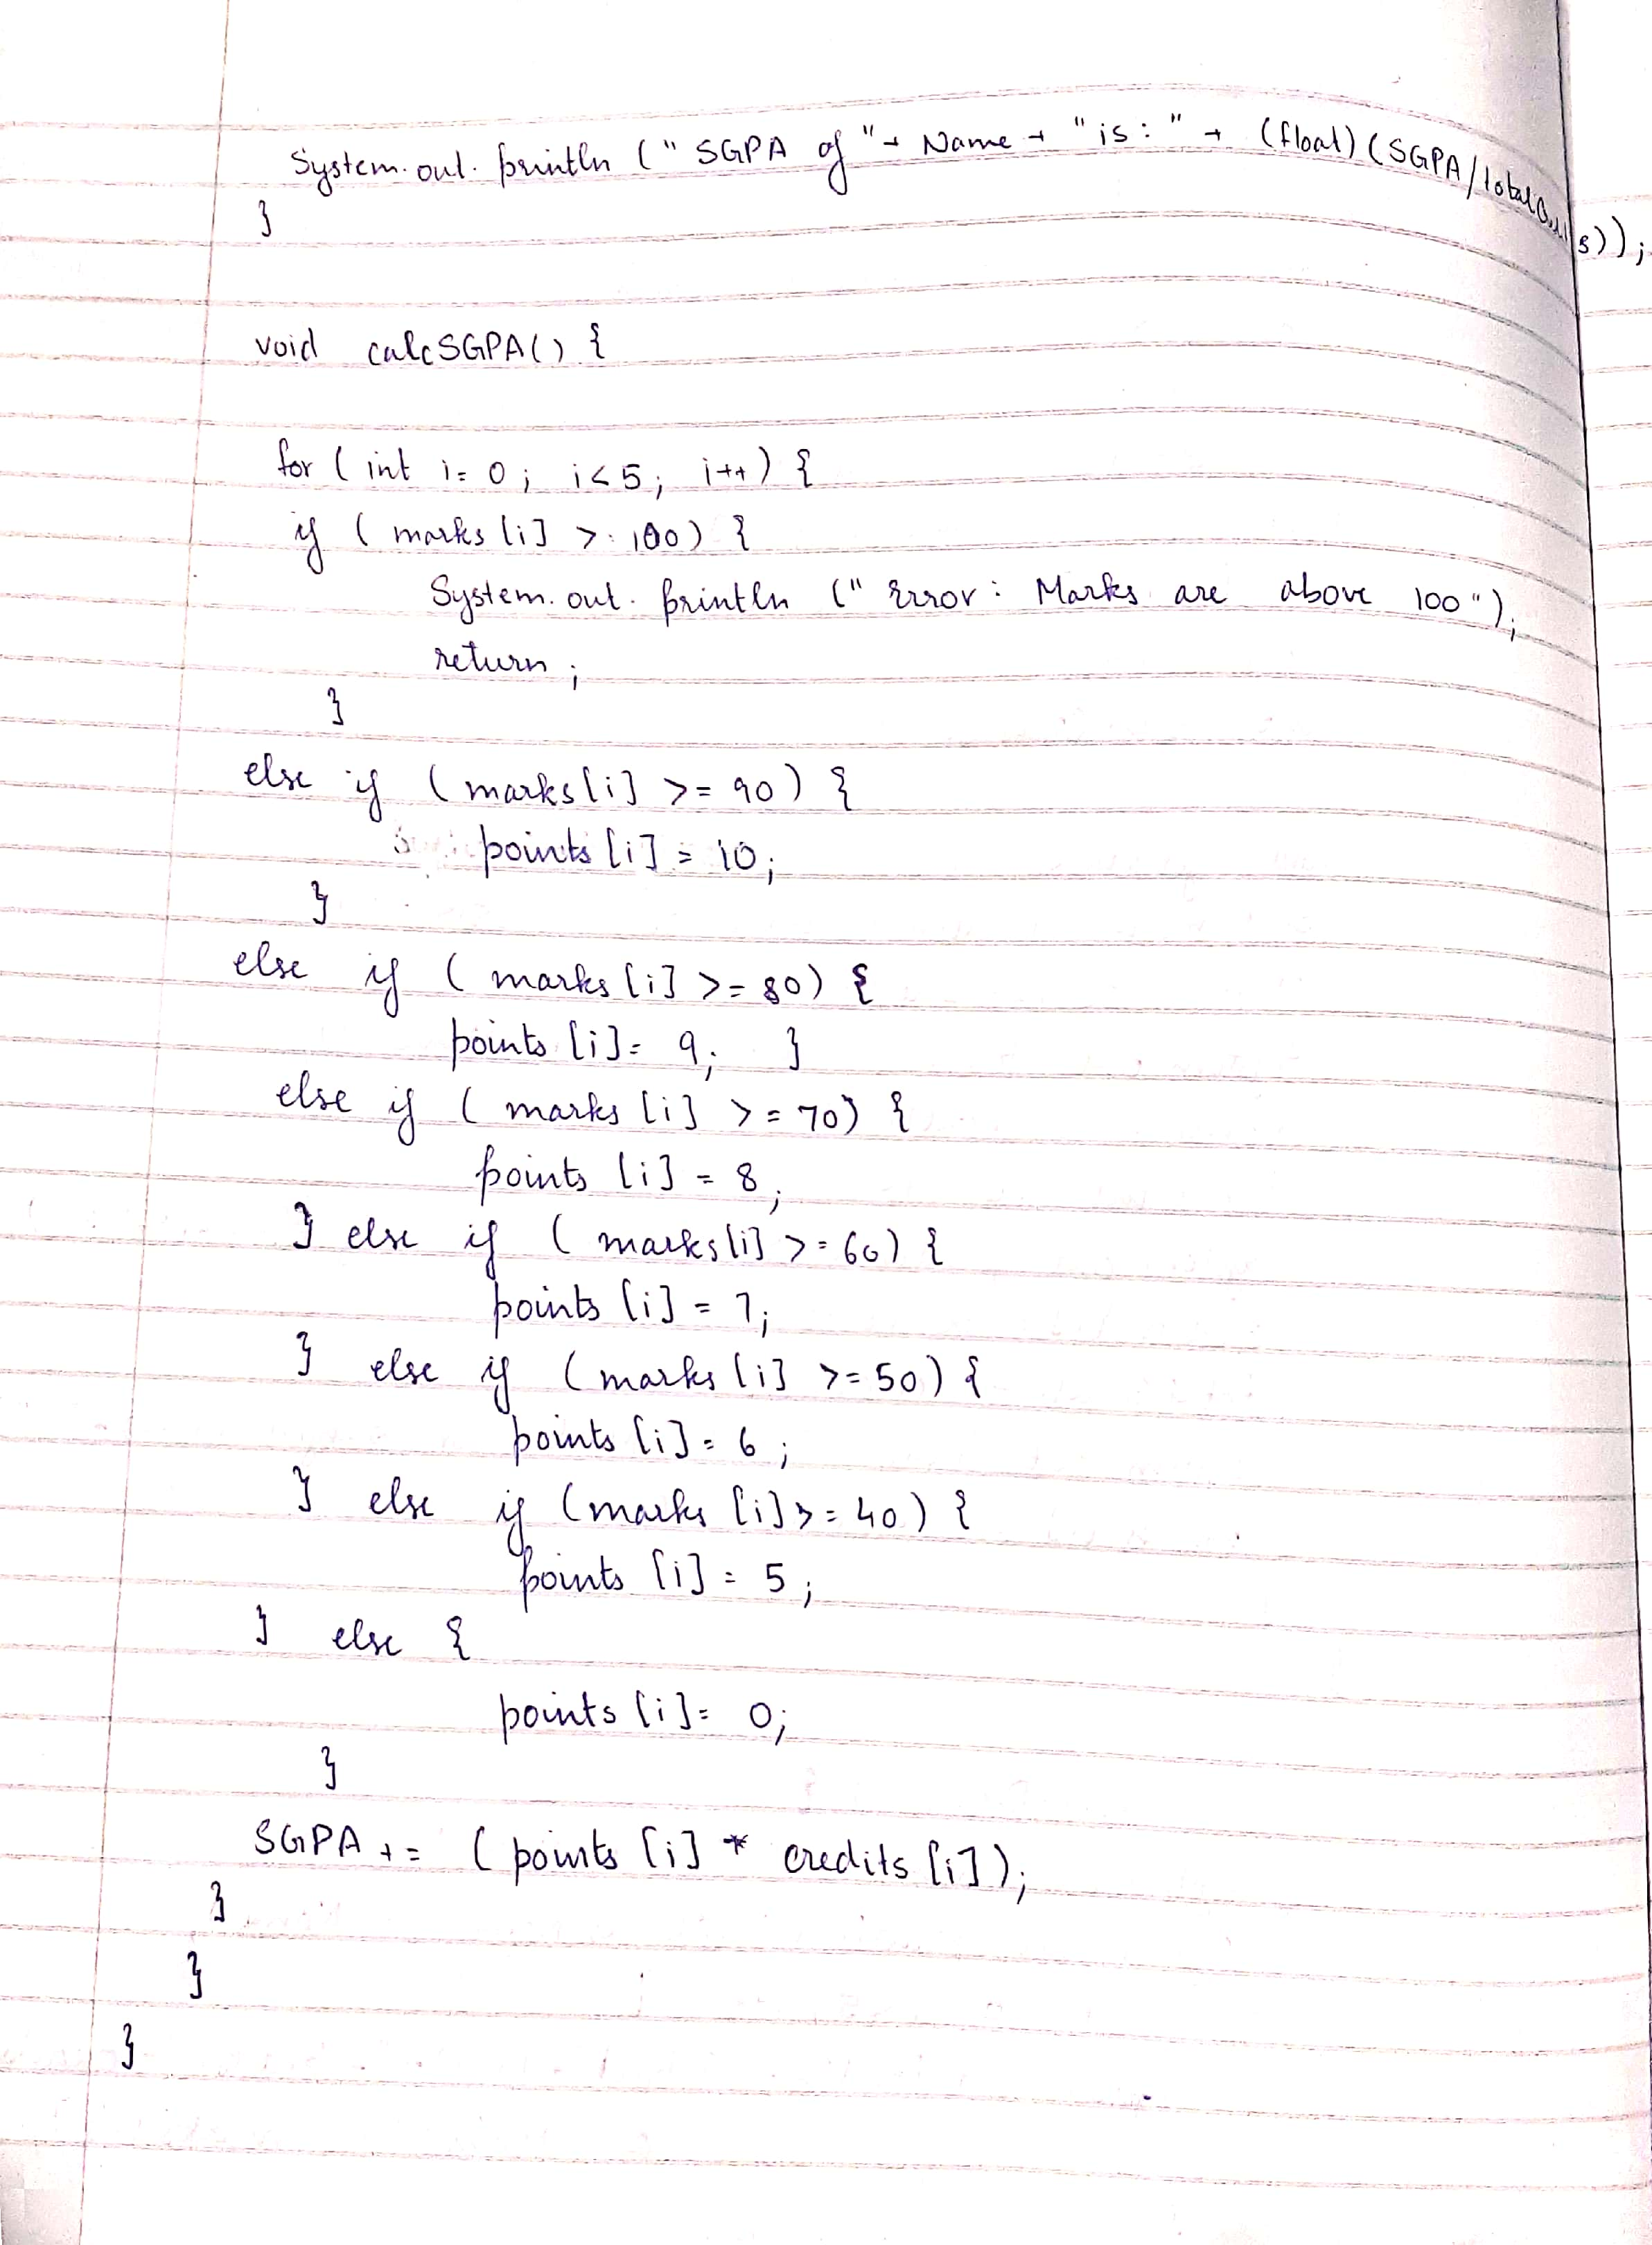 System.out.println (" SGPA of "+ Name + " is : " + (float) (SGPA/totalCredits));
}
void calcSGPA() {
for ( int i= 0 ; i<5; i++) {
if ( marks [i] > 100) {
System.out.println (" Error : Marks are above 100 ");
return ;
}
else if ( marks[i] >= 90 ) {
points [i] = 10;
}
else if ( marks [i] >= 80) {
points [i]= 9; }
else if ( marks [i] >= 70) {
points [i] = 8;
} else if ( marks[i] >= 60) {
points [i] = 7;
} else if (marks [i] >= 50) {
points [i] = 6 ;
} else if (marks [i] >= 40) {
points [i] = 5 ;
} else {
points [i]= 0;
}
SGPA += ( points [i] * credits [i]);
}
}
}